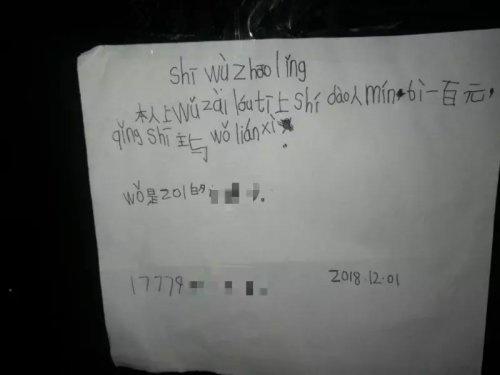 shī wù zhāo lǐng
本人上wǔ zài lóu tī上 shí dào人mín bì一百元,
qǐng shī主与 wǒ lián xì.
wǒ是201的
17779
2018.12.01